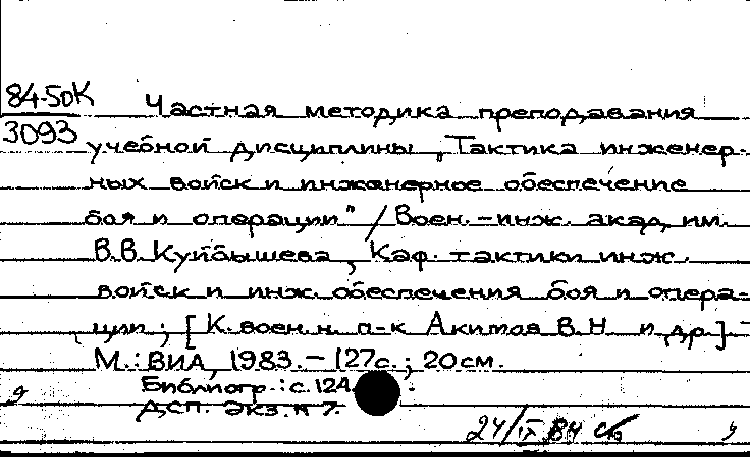 84-50К Частная методика преподавания
3093 учебной дисциплины „Тактика инженер-
ных войск и инженерное обеспечение
боя и операции" / Воен.-инж. акад. им.
В.В. Куйбышева, Каф. тактики инж.
войск и инж. обеспечения боя и опера-
ции; [К. воен. н. п-к Акимов В.Н и др.] -
М.: ВИА, 1983. - 127с.; 20 см.
Библиогр.: с. 124.
ДСП. Экз. N 7.
24/IX 84